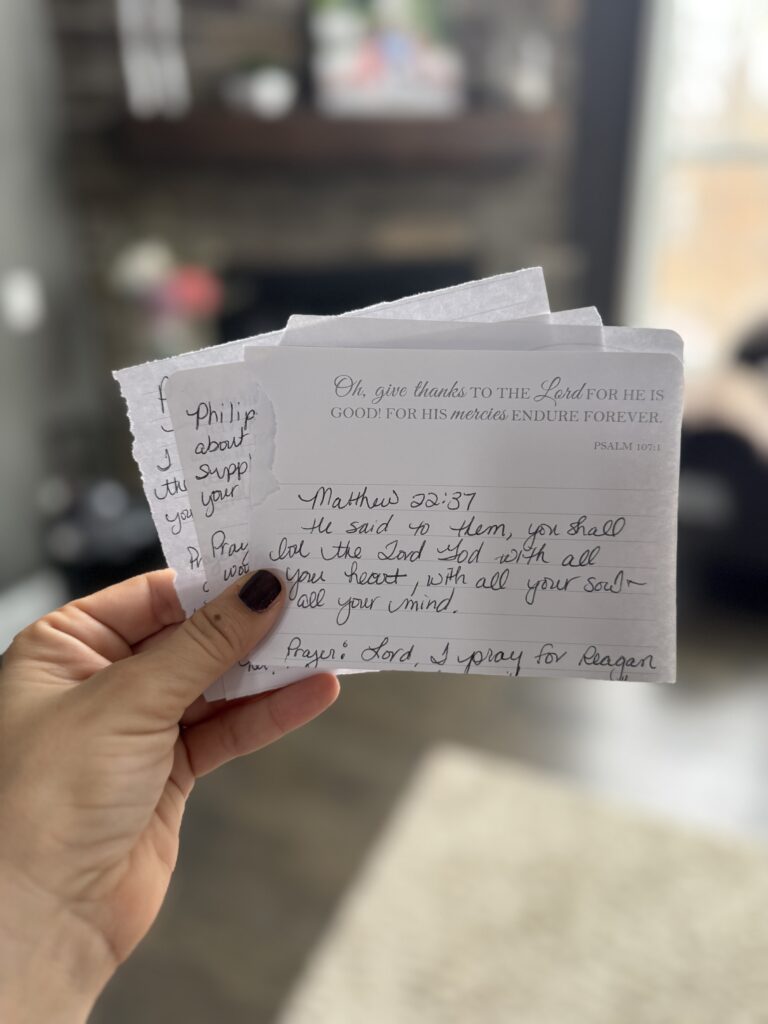 Oh, give thanks TO THE Lord FOR HE IS
GOOD! FOR HIS mercies ENDURE FOREVER.
PSALM 107:1
Matthew 22:37
He said to them, you shall
the Lord God with all
you heart, with all your soul
all your mind.
Prayer: Lord, I pray for Reagan
Philip
about
supp
your
Pray
I
the
you